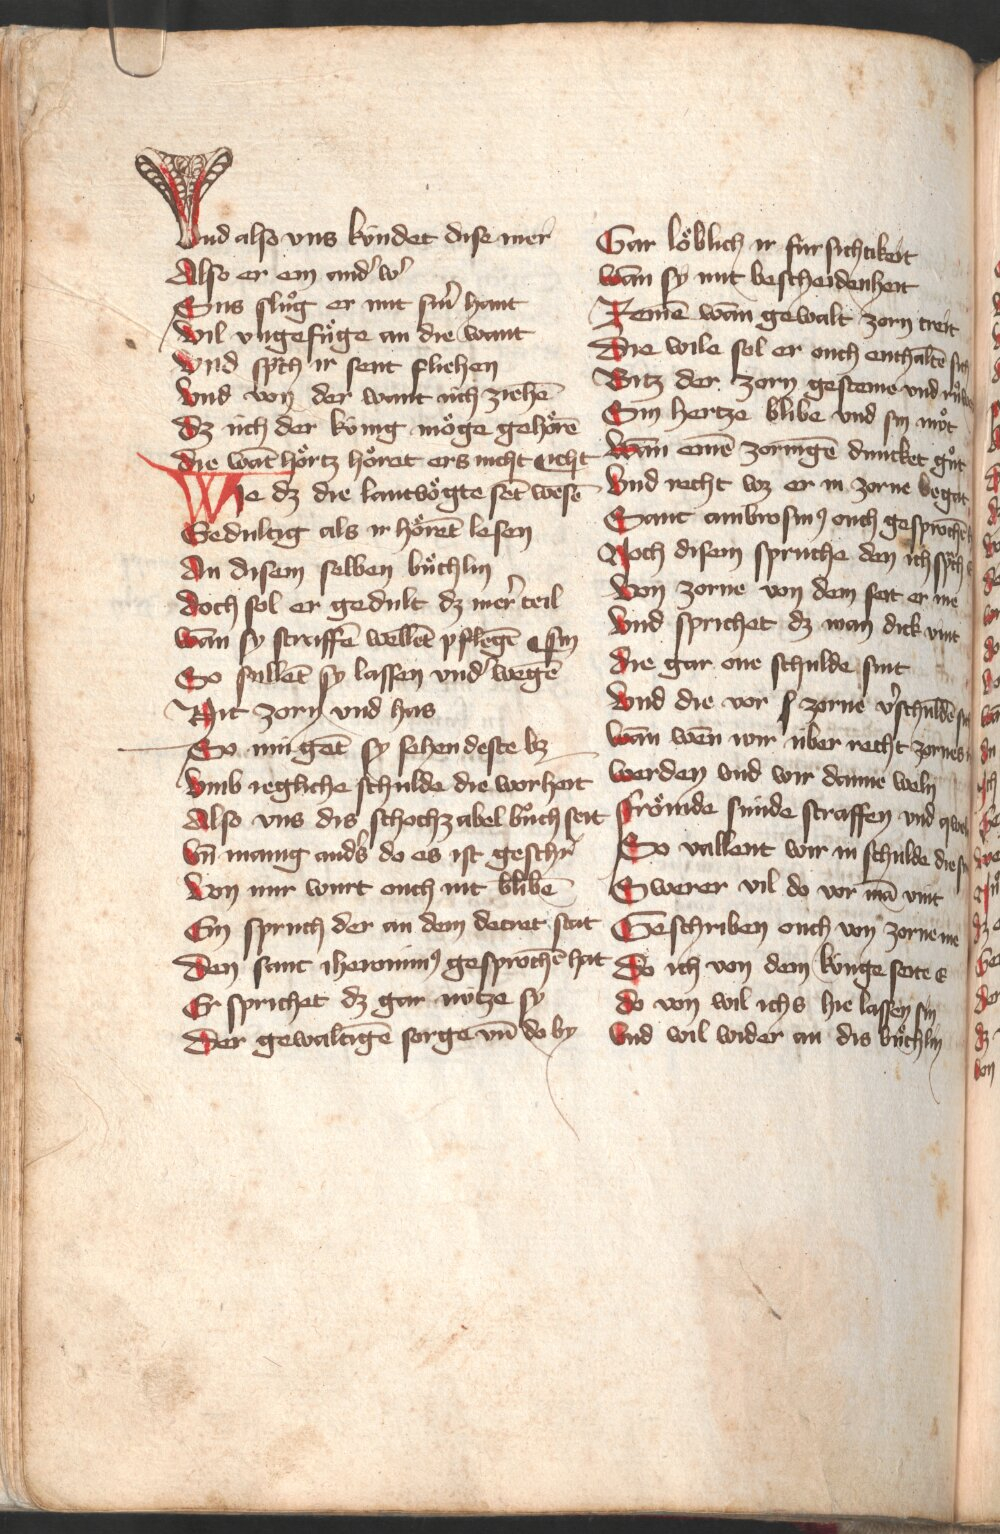 Vnd also vns kündet dise mer
Also er ein andˀ wˀ
Sus slůg er mit sinˀ hant
Vil vngefůge an die want
Vnd spͣch ir sent fliehen
Vnd von der want üch ziehē
Dz üch der künig möge gehörē
Die wāt hörtz höret ers nicht icht
Wie dz die lantvögte sēt wesē
Gedultig als ir hörēt lesen
An disem selben bůchlin
Doch sol er gedult dz merˀ teil
Wān sy straffē wellēt pflegē sin
So sullēt sy lassen vndˀ wegē
Mit zorn vnd has
So mügēt sy sehen deste bz
Vmb iegliche schulde die worheit
Also vns dis schochzabel bůch seit
Vn̄ manig andˀs do es ist geschrˀ
Von mir wirt ouch nit blibē
Ein spruch der an dem decret stat
Den sant iheronimꝰ gesprochē hat
Er sprichet dz gar nütze sy
Der gewaltigē sorge vn̄ do by
Gar löblich ir fürsichtikeit
Wān sy mit bescheidenheit
Iemē wām gewalt zorn treit
Die wile sol er ouch enthaltē sich
Bitz der zorn gesteme vnd
Sin hertze blibe vnd sin můt
Wān einē zornigē duncket gůt
Vnd recht wz er in zorne begat
Sant ambrosiuꝰ ouch gesprochē
Noch disem spruche den ich spͣch
Von zorne von dem seit er me
Vnd sprichet dz man dick vint
Die gar one schulde sint
Vnd die vor zorne vˀschuldē
Wān wēn wir über recht zornes
Werden vnd wir danne weln
Frömde sünde straffen vnd
So vallent wir in schulde die
Swerer vil do vor mā vint
Geschriben ouch von zorne me
Do ich von dem künge seite e
Do von wil ichs hie lassen sin
Vnd wil wider an dis bůchlin